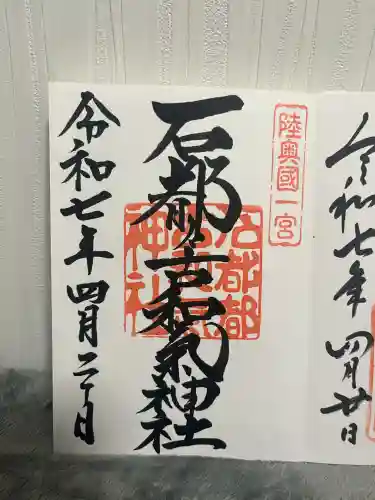 令和七年 四月廿日
陸奥國一宮
石都々古和氣神社
石都都古和氣神社
令和七年四月二十日